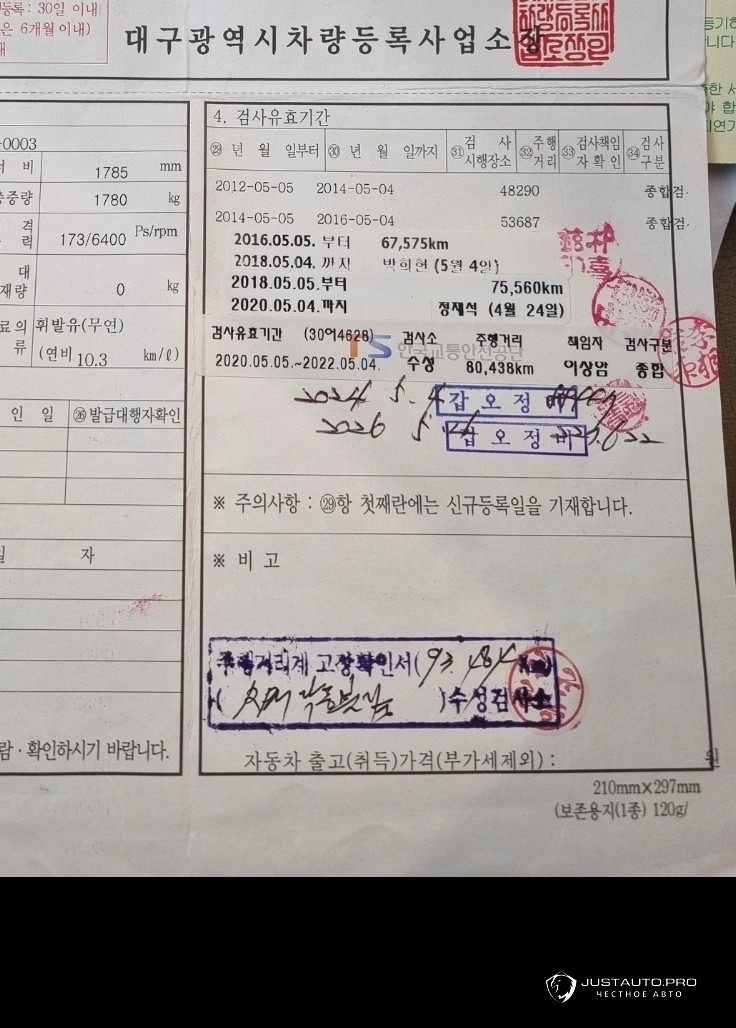 등록: 30일 이내
은 6개월 이내)
대구광역시차량등록사업소장
-0003
너 비 1785 mm
총중량 1780 kg
격 력 173/6400 Ps/rpm
대 재량 0 kg
료의 류 휘발유(무연)
(연비 10.3 km/ℓ)
인 일 ㉖발급대행자확인
일 자
람 · 확인하시기 바랍니다.
4. 검사유효기간
㉙ 년 월 일부터 ㉚ 년 월 일까지 ㉛ 검 사 시행장소 ㉜ 주행 거리 ㉝ 검사책임 자 확 인 ㉞ 검사 구분
2012-05-05 2014-05-04 48290 종합검
2014-05-05 2016-05-04 53687 종합검
2016.05.05. 부터 67,575km
2018.05.04. 까지 박희헌 (5월 4일)
2018.05.05.부터 75,560km
2020.05.04.까지 정재석 (4월 24일)
검사유효기간 (30어4628) 검사소 주행거리 책임자 검사구분
TS 한국교통안전공단
2020.05.05.~2022.05.04. 수성 80,438km 이상암 종합
2024 5. 4 갑 오 정
2026 5. 갑 오 정 비
※ 주의사항 : ㉙항 첫째란에는 신규등록일을 기재합니다.
※ 비 고
주행거리계 고장확인서(93,484 Km)
( )수성검사소
자동차 출고(취득)가격(부가세제외) : 원
210mm×297mm
(보존용지(1종) 120g/
JUSTAUTO.PRO
ЧЕСТНОЕ АВТО